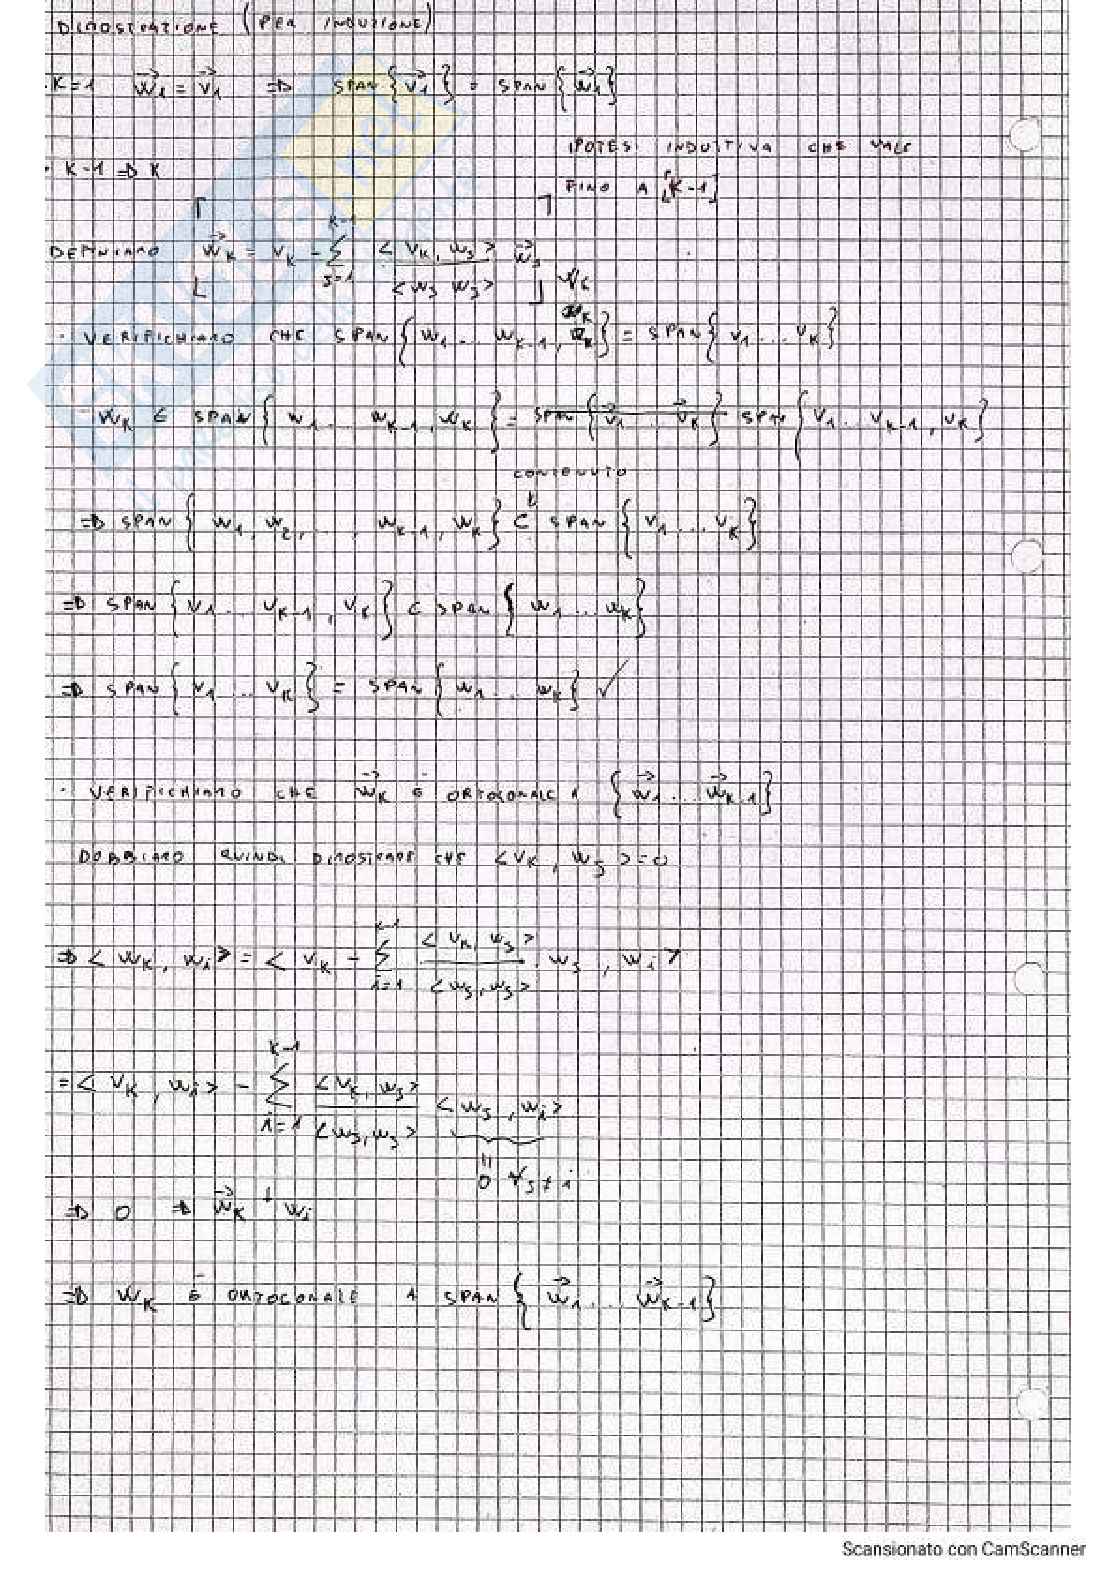 DIMOSTRAZIONE (PER INDUZIONE)
· K=1 w⃗₁ = v⃗₁ ⇒ SPAN{v⃗₁} = SPAN{w⃗₁}
IPOTESI INDUTTIVA CHE VALE
· K-1 ⇒ K
FINO A [K-1]
DEFINIAMO w⃗_K = v_K - Σ_{J=1}^{K-1} <v_K, w_J> / <w_J, w_J> w⃗_J
· VERIFICHIAMO CHE SPAN{w₁ ... w_{K-1}, w_K} = SPAN{v₁ ... v_K}
w_K ∈ SPAN{w₁ ... w_{K-1}, w_K} = SPAN{v⃗₁ ... v⃗_K} SPAN{v₁ ... v_{K-1}, v_K}
CONTENUTO
↓
⇒ SPAN{w₁, w₂, ..., w_{K-1}, w_K} ⊂ SPAN{v₁ ... v_K}
⇒ SPAN{v₁ ... v_{K-1}, v_K} ⊂ SPAN{w₁ ... w_K}
⇒ SPAN{v₁ ... v_K} = SPAN{w₁ ... w_K} ✓
· VERIFICHIAMO CHE w⃗_K È ORTOGONALE A {w⃗₁ ... w⃗_{K-1}}
DOBBIAMO QUINDI DIMOSTRARE CHE <v_K, w_J> = 0
⇒ <w_K, w_i> = <v_K - Σ_{i=1}^{K-1} <v_K, w_J> / <w_J, w_J> · w_J, w_i>
= <v_K, w_i> - Σ_{i=1}^{K-1} <v_K, w_J> / <w_J, w_J> <w_J, w_i>
=
0 ∀ J ≠ i
⇒ 0 ⇒ w⃗_K ⊥ w_i
⇒ w_K È ORTOGONALE A SPAN{w⃗₁ ... w⃗_{K-1}}
Scansionato con CamScanner